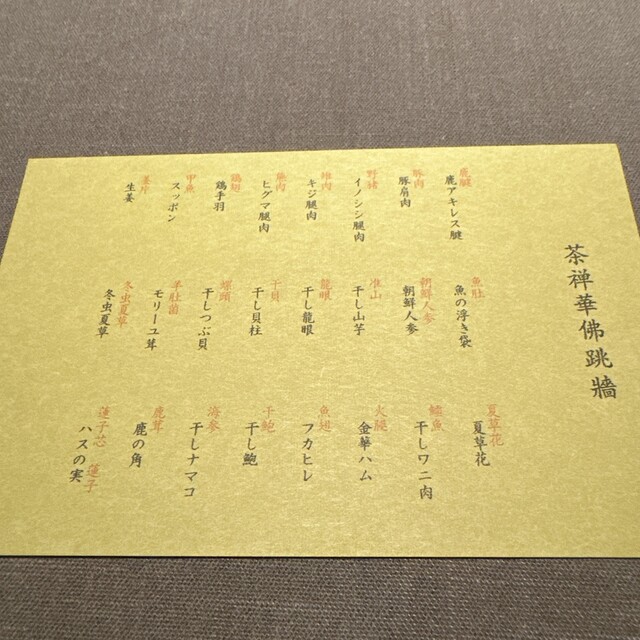 茶禅華佛跳牆
鹿腱
鹿アキレス腱
豚肉
豚肩肉
野猪
イノシシ腿肉
雉肉
キジ腿肉
ヒグマ腿肉
鶏翅
鶏手羽
甲魚
スッポン
姜片
生姜
魚肚
魚の浮き袋
朝鮮人参
朝鮮人参
准山
干し山芋
龍眼
干し龍眼
干貝
干し貝柱
螺頭
干しつぶ貝
羊肚菌
モリーユ茸
冬虫夏草
冬虫夏草
夏草花
夏草花
鱷魚
干しワニ肉
火腿
金華ハム
魚翅
フカヒレ
干鮑
干し鮑
海参
干しナマコ
鹿茸
鹿の角
蓮子芯 蓮子
ハスの実